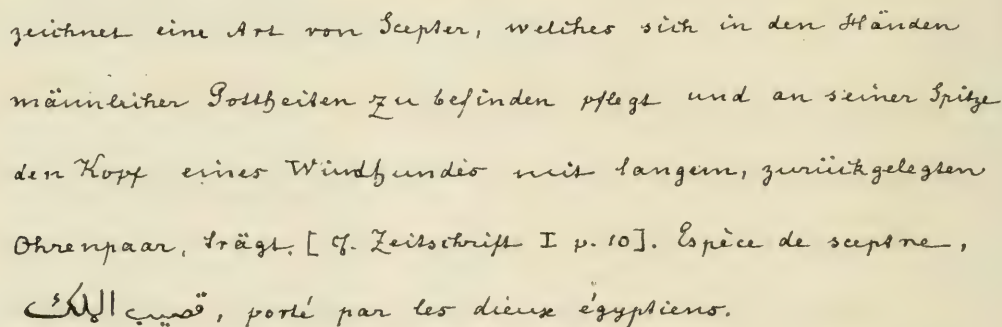 zeichnet eine Art von Scepter, welches sich in den Händen
männlicher Gottheiten zu befinden pflegt und an seiner Spitze
den Kopf eines Windhundes mit langem, zurückgelegten
Ohrenpaar, trägt. [cf. Zeitschrift I p. 10]. Espèce de sceptre,
قصيب الملك, porté par les dieux égyptiens.